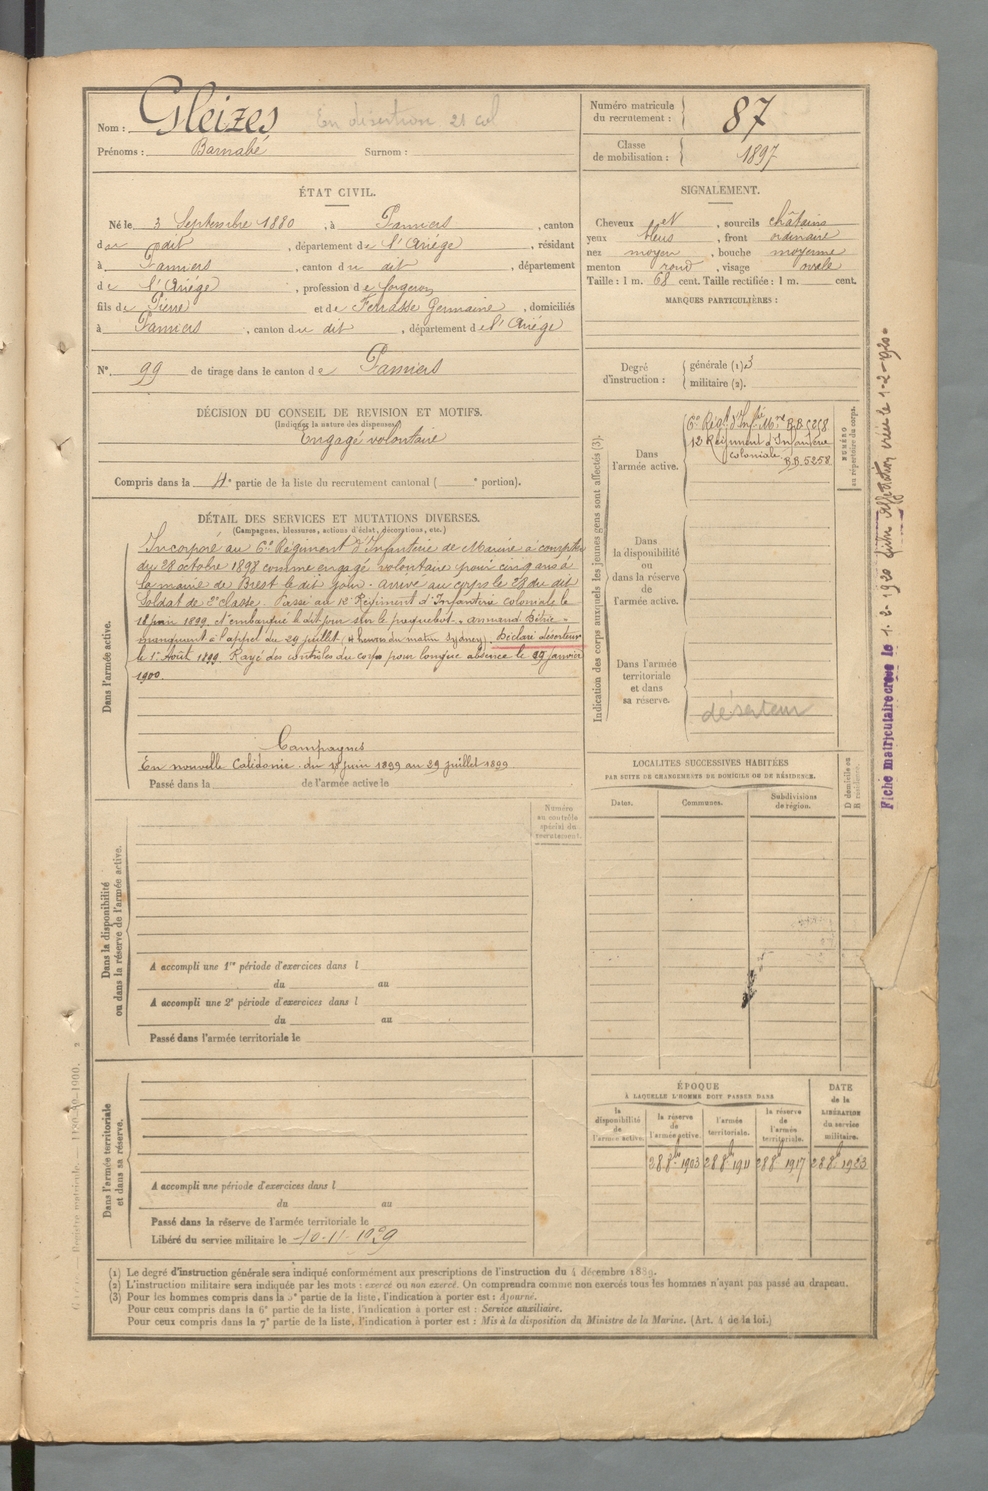 Nom : Gleizes En désertion 21 col
Prénoms : Barnabé Surnom :
Numéro matricule du recrutement : 87
Classe de mobilisation : 1897
ÉTAT CIVIL.
Né le 3 Septembre 1880, à Pamiers, canton
du dit, département de l'Ariége, résidant
à Pamiers, canton du dit, département
de l'Ariége, profession de forgeron
fils de Pierre et de Ferrasse Germaine, domiciliés
à Pamiers, canton du dit, département de l'Ariége
N° 99 de tirage dans le canton de Pamiers
SIGNALEMENT.
Cheveux et, sourcils châtains
yeux bleus, front ordinaire
nez moyen, bouche moyenne
menton rond, visage ovale
Taille : 1 m. 68 cent. Taille rectifiée : 1 m. cent.
MARQUES PARTICULIÈRES :
Degré d'instruction : générale (1) 3
militaire (2).
DÉCISION DU CONSEIL DE REVISION ET MOTIFS.
(Indiquer la nature des dispenses)
Engagé volontaire
Compris dans la 4e partie de la liste du recrutement cantonal ( e portion).
DÉTAIL DES SERVICES ET MUTATIONS DIVERSES.
(Campagnes, blessures, actions d'éclat, décorations, etc.)
Dans l'armée active.
Incorporé au 6e Régiment d'Infanterie de Marine à compter
du 28 octobre 1898 comme engagé volontaire pour cinq ans à
la mairie de Brest le dit jour. Arrivé au corps le 28 du dit
Soldat de 2e classe. Passé au 12e Régiment d'Infanterie coloniale le
18 juin 1899. et embarqué le dit jour sur le paquebot "Armand Béhic"
manquant à l'appel du 29 juillet (4 heures du matin Sydney). Déclaré déserteur
le 1er Août 1899. Rayé des contrôles du corps pour longue absence le 29 janvier
1900.
Campagnes
En nouvelle Calédonie du 18 juin 1899 au 29 juillet 1899
Passé dans la de l'armée active le
Indication des corps auxquels les jeunes gens sont affectés (3).
NUMÉRO au répertoire du corps.
Dans l'armée active.
6e Régt d'Infie Mne B.B 5258
12 Régiment d'Infanterie
coloniale B.B 5258
Dans la disponibilité ou dans la réserve de l'armée active.
Dans l'armée territoriale et dans sa réserve.
déserteur
Fiche matriculaire créée le 1-2-1920
LOCALITÉS SUCCESSIVES HABITÉES
PAR SUITE DE CHANGEMENTS DE DOMICILE OU DE RÉSIDENCE.
Dates. Communes. Subdivisions de région.
D domicile ou R résidence.
Dans la disponibilité
ou dans la réserve de l'armée active.
Numéro au contrôle spécial du recrutement.
A accompli une 1re période d'exercices dans l
du au
A accompli une 2e période d'exercices dans l
du au
Passé dans l'armée territoriale le
Dans l'armée territoriale
et dans sa réserve.
A accompli une période d'exercices dans l
du au
Passé dans la réserve de l'armée territoriale le
Libéré du service militaire le 10-11-1929
ÉPOQUE
À LAQUELLE L'HOMME DOIT PASSER DANS
la disponibilité de l'armée active.
la réserve de l'armée active.
l'armée territoriale.
la réserve de l'armée territoriale.
DATE de la LIBÉRATION du service militaire.
28 8bre 1903 28 8bre 1911 28 8bre 1917 28 8bre 1923
(1) Le degré d'instruction générale sera indiqué conformément aux prescriptions de l'instruction du 4 décembre 1889.
(2) L'instruction militaire sera indiquée par les mots : exercé ou non exercé. On comprendra comme non exercés tous les hommes n'ayant pas passé au drapeau.
(3) Pour les hommes compris dans la 5e partie de la liste, l'indication à porter est : Ajourné.
Pour ceux compris dans la 6e partie de la liste, l'indication à porter est : Service auxiliaire.
Pour ceux compris dans la 7e partie de la liste, l'indication à porter est : Mis à la disposition du Ministre de la Marine. (Art. 4 de la loi.)
Registre matricule.